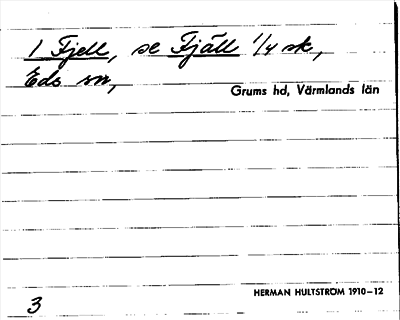 1 Fjell, se Fjäll 1/4 sk,
Eds sn,
Grums hd, Värmlands län
HERMAN HULTSTRÖM 1910–12
3